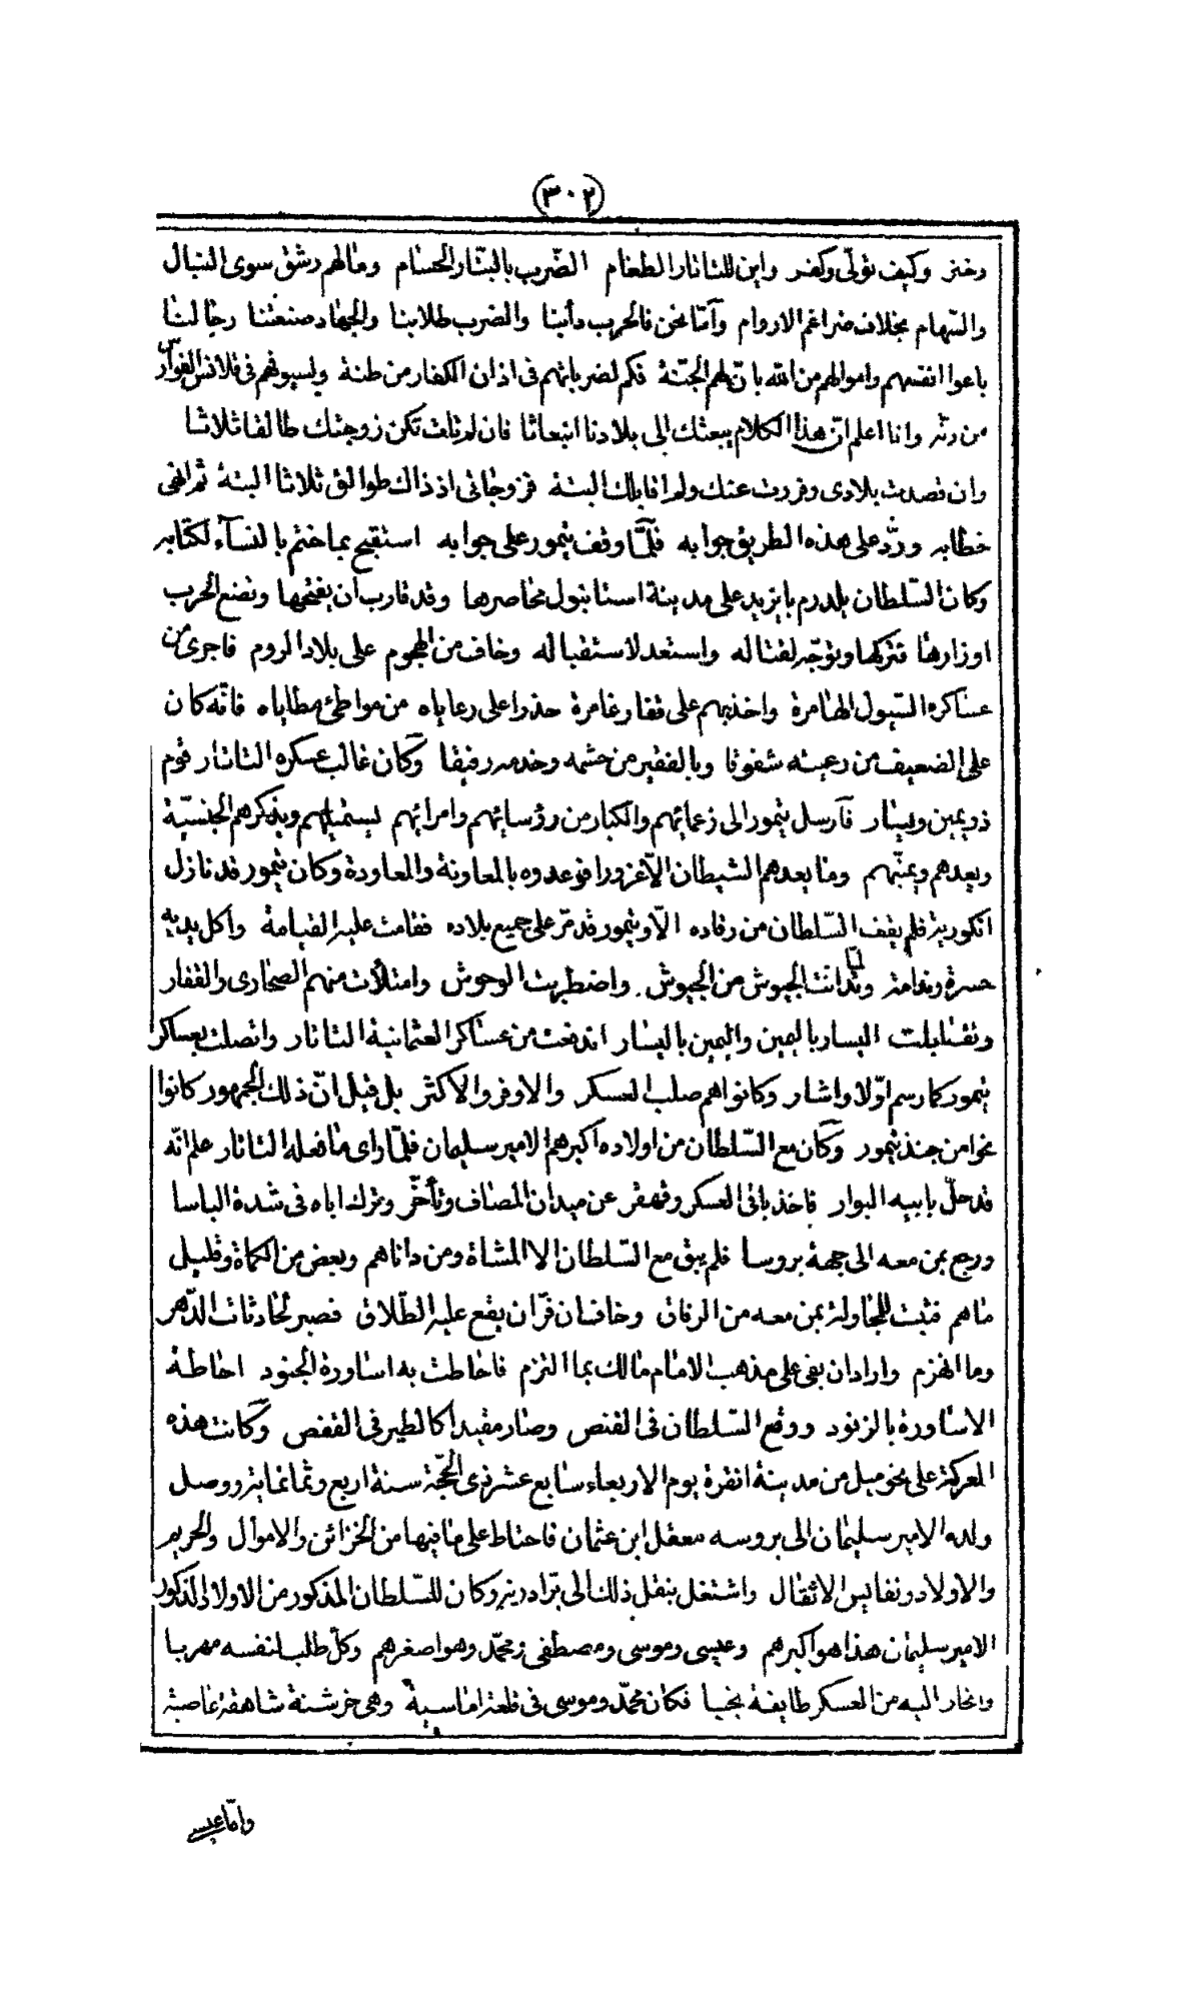 (٣٠٢)
وختر وكيف تولّى وكفر واين للتاتار الطغام الضّرب بالبتّار الحسام ومالهم رشق سوى النبال
والسّهام بخلاف ضراغم الاروام وآمّا نحن فالحرب دأبنا والضرب طلابنا والجهاد صنعتنا رجالنا
باعوا انفسهم واموالهم من الله بانّ لهم الجنّة فكم لضرباتهم فى اذان الكفار من طنة ولسيوفهم فى قلانس القوانس
من رنّه وانا اعلم انّ هذا الكلام يبعثك الى بلادنا انبعاثا فان لم تات تكن زوجتك طالقا ثلاثا
وان قصدت بلادى وفررت عنك ولم اقابلك البتة فزوجاتى اذ ذاك طوالق ثلاثا البتة ثم انهى
خطابه وردّ على هذه الطريق جوابه فلمّا وقف تيمور على جوابه استقبح بما ختم بالنسآء لكتابه
وكان السّلطان يلدرم بايزيد على مدينة استانبول محاصرها وقد قارب ان يفتحها وتضع الحرب
اوزارها فتركها وتوجّه لقتاله واستعد لاستقباله وخاف من الهجوم على بلاد الروم فاجرى من
عساكره السّيول الهامرة واخذ بهم على قفار غامرة حذرا على رعاياه من مواطئ مطاياه فانّه كان
على الضعيف من رعيته شفوقا وبالفقير من حشمه وخدمه رفيقا وكان غالب عسكره التاتار قوم
ذو يمين ويسار فآرسل تيمور الى زعمائهم والكبار من رؤسائهم وامرائهم يستميلهم ويذكرهم الجنسيّة
ويعدهم ويمنّيهم وما يعدهم الشيطان الاّ غرورا فوعدوه بالمعاونة والمعاودة وكان تيمور قد نازل
انكوريه فلم يقف السّلطان من رقاده الاّ وتيمور قد مرّ على جميع بلاده فقامت عليه القيامة واكل يديه
حسرة وندامة ولمّا تدانت الجيوش من الجيوش واضطربت الوحوش وامتلأت منهم الصحارى والقفار
وتقابلت اليسار باليمين واليمين باليسار اندفعت من عساكر العثمانية التاتار واتصلت بعساكر
تيمور كما رسم اوّلا واشار وكانوا هم صلب العسكر والاوفر والاكثر بل قيل انّ ذلك الجمهور كانوا
نحوا من جند تيمور وكان مع السّلطان من اولاده اكبرهم الامير سليمان فلمّا راى ما فعله التاتار علم انّه
قد حلّ بابيه البوار فاخذ باقى العسكر وقهقر عن ميدان المصاف وتأخّر وترك اباه فى شدة الباسا
ورجع بمن معه الى جهة بروسا فلم يبق مع السّلطان الا المشاة ومن داناهم وبعض من الكماة وقليل
ما هم فثبت للمجاولة بمن معه من الرفاق وخاف ان فرّ ان يقع عليه الطّلاق فصبر لحادثات الدّهر
وما انهزم واراد ان يفى على مذهب الامام مالك بما التزم فاحاطت به اساورة الجنود احاطة
الاساورة بالزنود ووقع السّلطان فى القنص وصار مقيدا كالطير فى القفص وكانت هذه
المعركة على نحو ميل من مدينة انقرة يوم الاربعاء سابع عشر ذى الحجّة سنة اربع وثمانماية ووصل
ولده الامير سليمان الى بروسه معقل ابن عثمان فاحتاط على ما فيها من الخزائن والاموال والحريم
والاولاد ونفايس الاثقال واشتغل بنقل ذلك الى برّ ادرنه وكان للسّلطان المذكور من الاولاد الذكور
الامير سليمان هذا هو اكبرهم وعيسى وموسى ومصطفى ومحمّد وهو اصغرهم وكلّ طلب لنفسه مهربا
وانحاز اليه من العسكر طايفة نجبا فكان محمّد وموسى فى قلعة اماسية وهى خرشنة شاهقة عاصية
وامّا عيسى